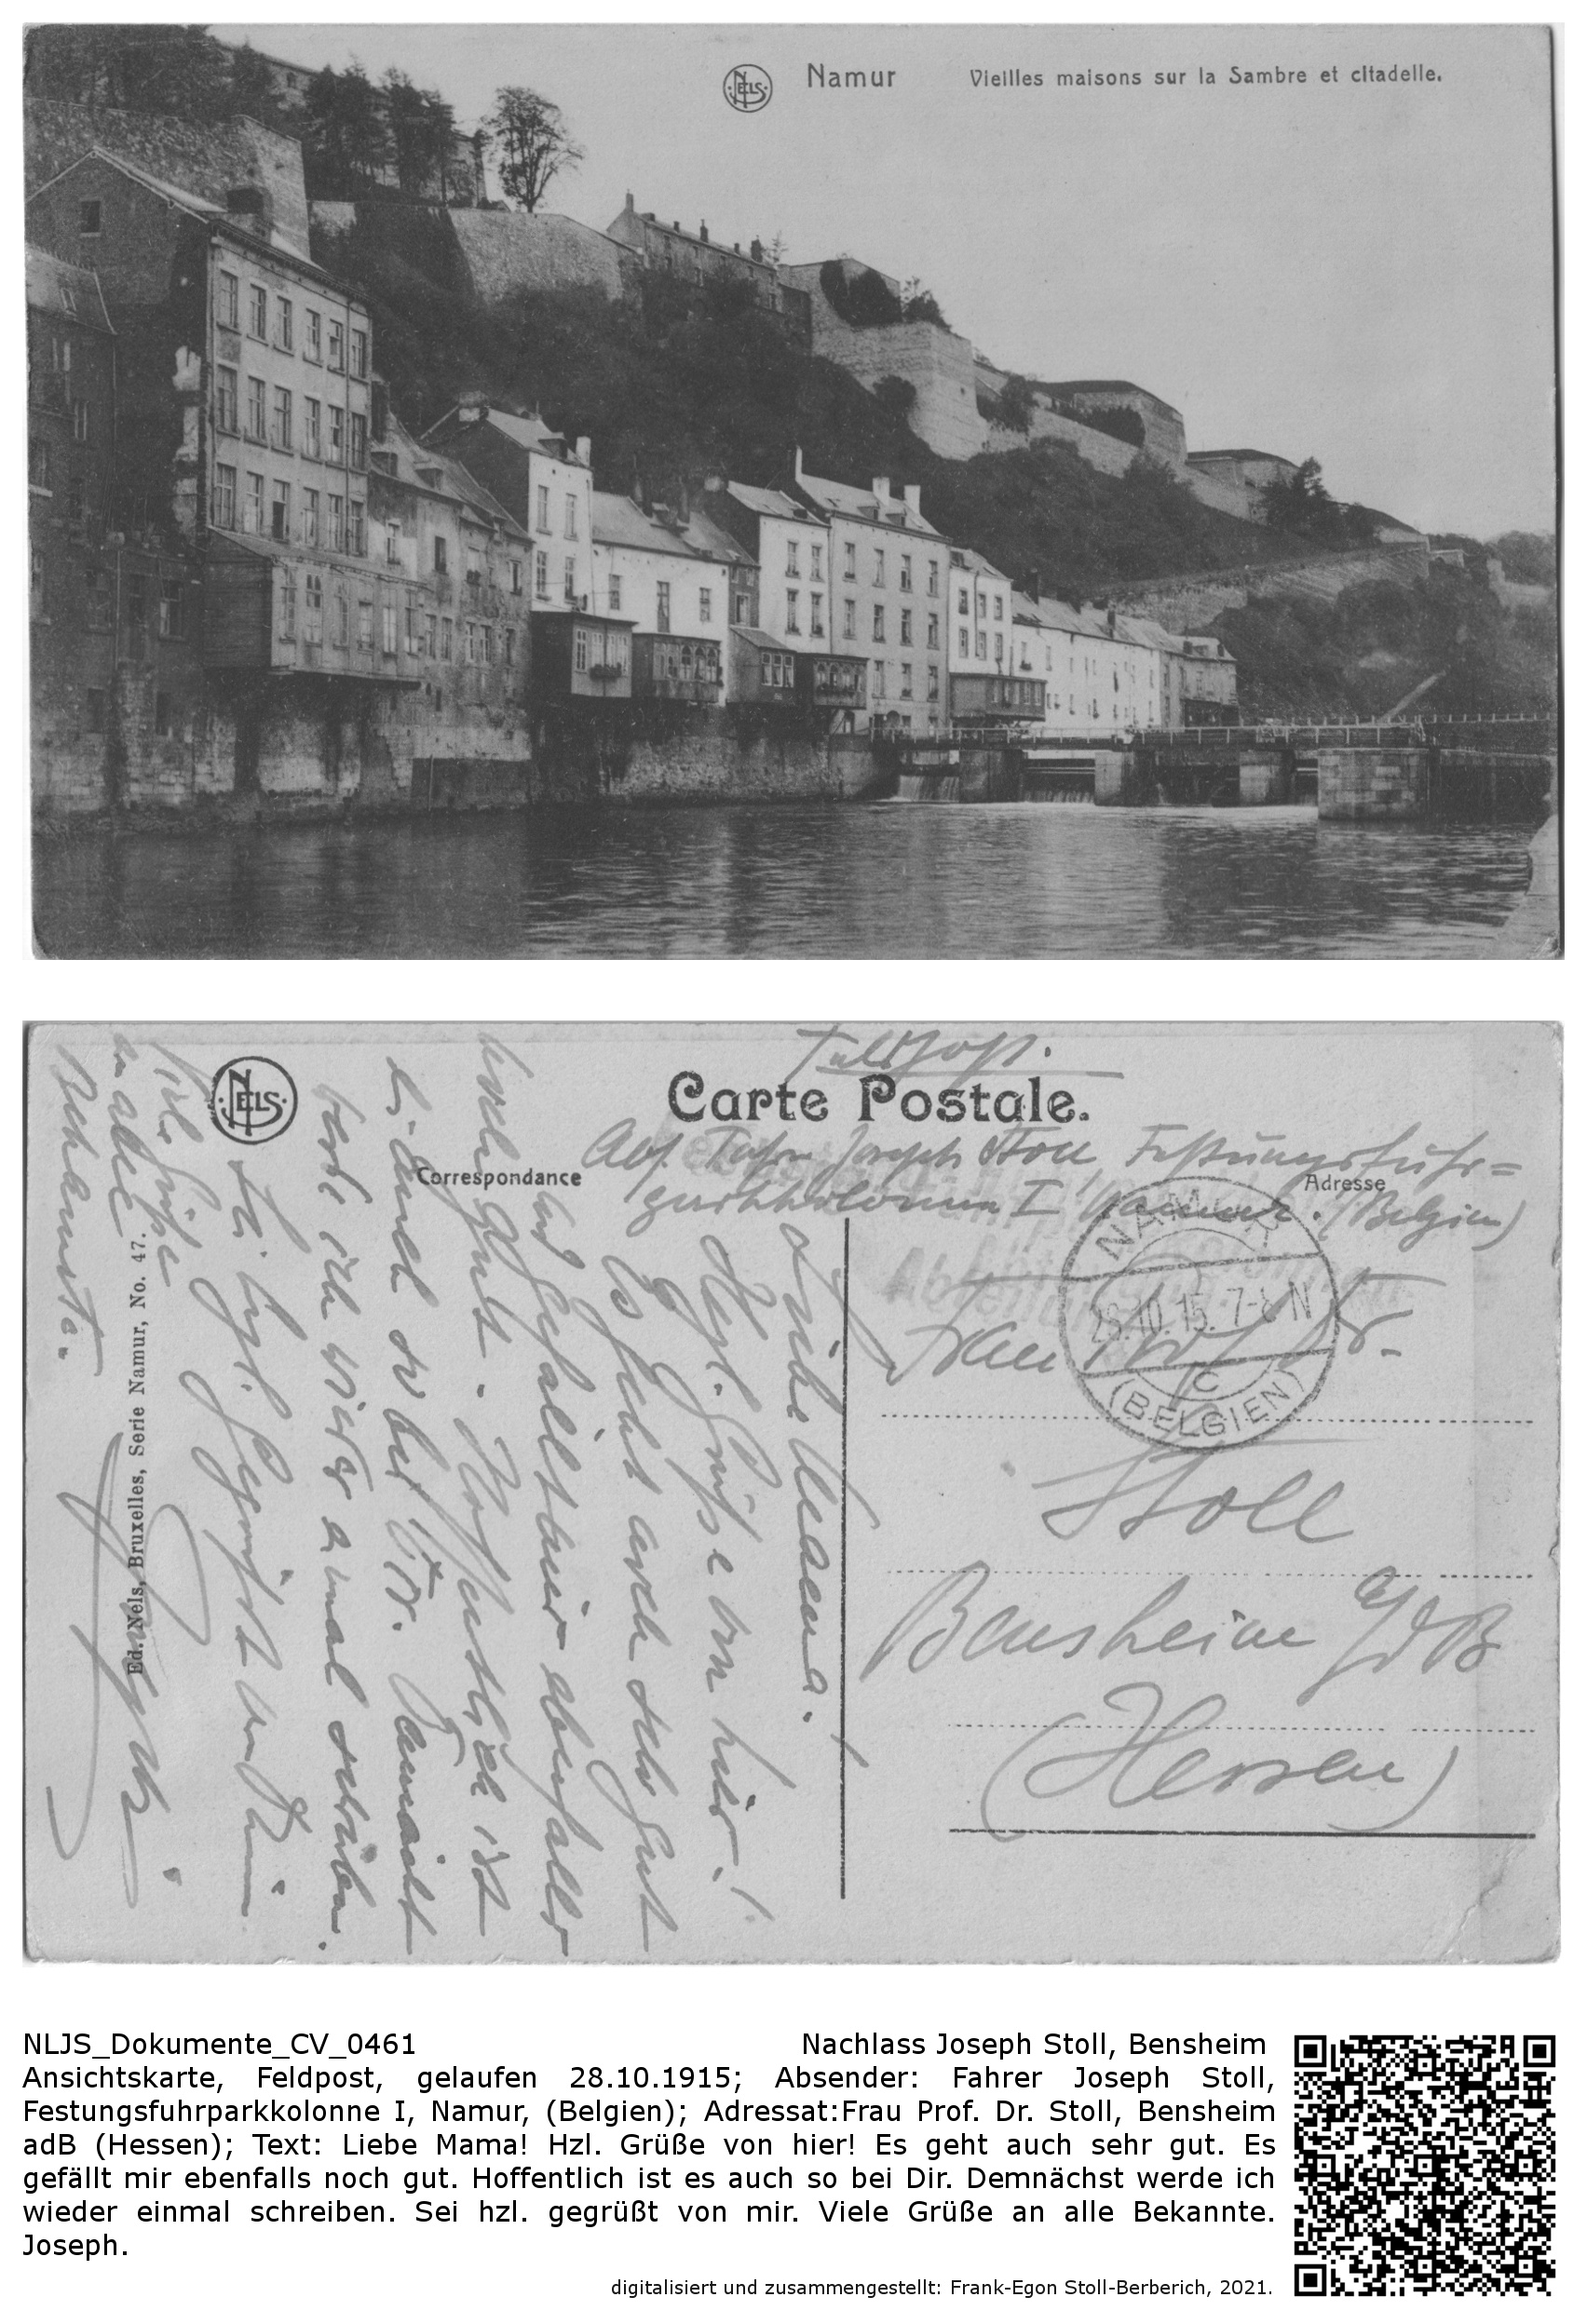 NELS
Namur
Vieilles maisons sur la Sambre et citadelle.
Feldpost.
NELS
Carte Postale.
Abs. Fahrer Joseph Stoll, Festungsfuhr=
parkkolonne I, Namur. (Belgien)
Correspondance
Adresse
NAMUR
28.10.15. 7-8 N
C
(BELGIEN)
Frau Prof. Dr.
Stoll
Bensheim a/d B
(Hessen)
Liebe Mama!
Hzl. Grüße von hier!
Es geht auch sehr gut
und gefällt mir ebenfalls
noch gut. Hoffentlich ist
es auch so bei Dir. Demnächst
werde ich wieder einmal schreiben.
Sei hzl. gegrüßt von mir.
Viele Grüße
an alle
Bekannte.
Joseph
Ed. Nels, Bruxelles, Serie Namur, No. 47.
NLJS_Dokumente_CV_0461
Nachlass Joseph Stoll, Bensheim
Ansichtskarte, Feldpost, gelaufen 28.10.1915; Absender: Fahrer Joseph Stoll,
Festungsfuhrparkkolonne I, Namur, (Belgien); Adressat:Frau Prof. Dr. Stoll, Bensheim
adB (Hessen); Text: Liebe Mama! Hzl. Grüße von hier! Es geht auch sehr gut. Es
gefällt mir ebenfalls noch gut. Hoffentlich ist es auch so bei Dir. Demnächst werde ich
wieder einmal schreiben. Sei hzl. gegrüßt von mir. Viele Grüße an alle Bekannte.
Joseph.
digitalisiert und zusammengestellt: Frank-Egon Stoll-Berberich, 2021.